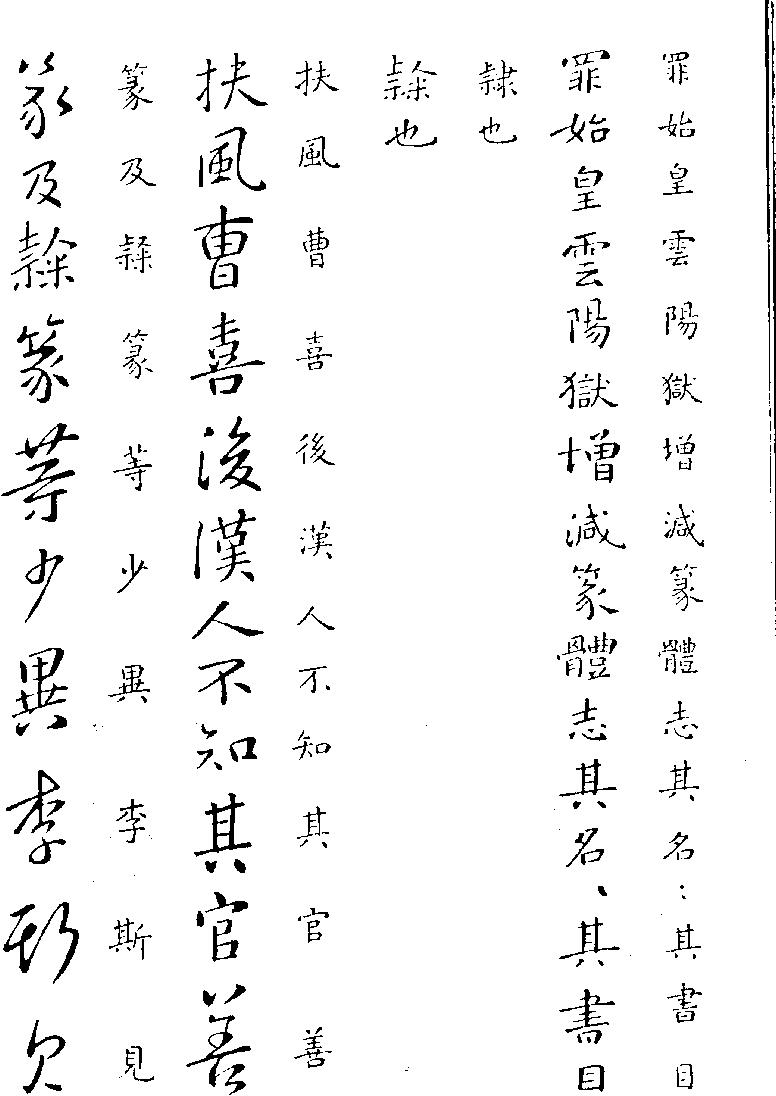 罪始皇雲陽獄增減篆體志其名：其書目
罪始皇雲陽獄增減篆體志其名、其書目
隷也
隸也
扶風曹喜後漢人不知其官善
扶風曹喜後漢人不知其官善
篆及隸篆等少異李斯見
篆及隸篆等少異李斯見